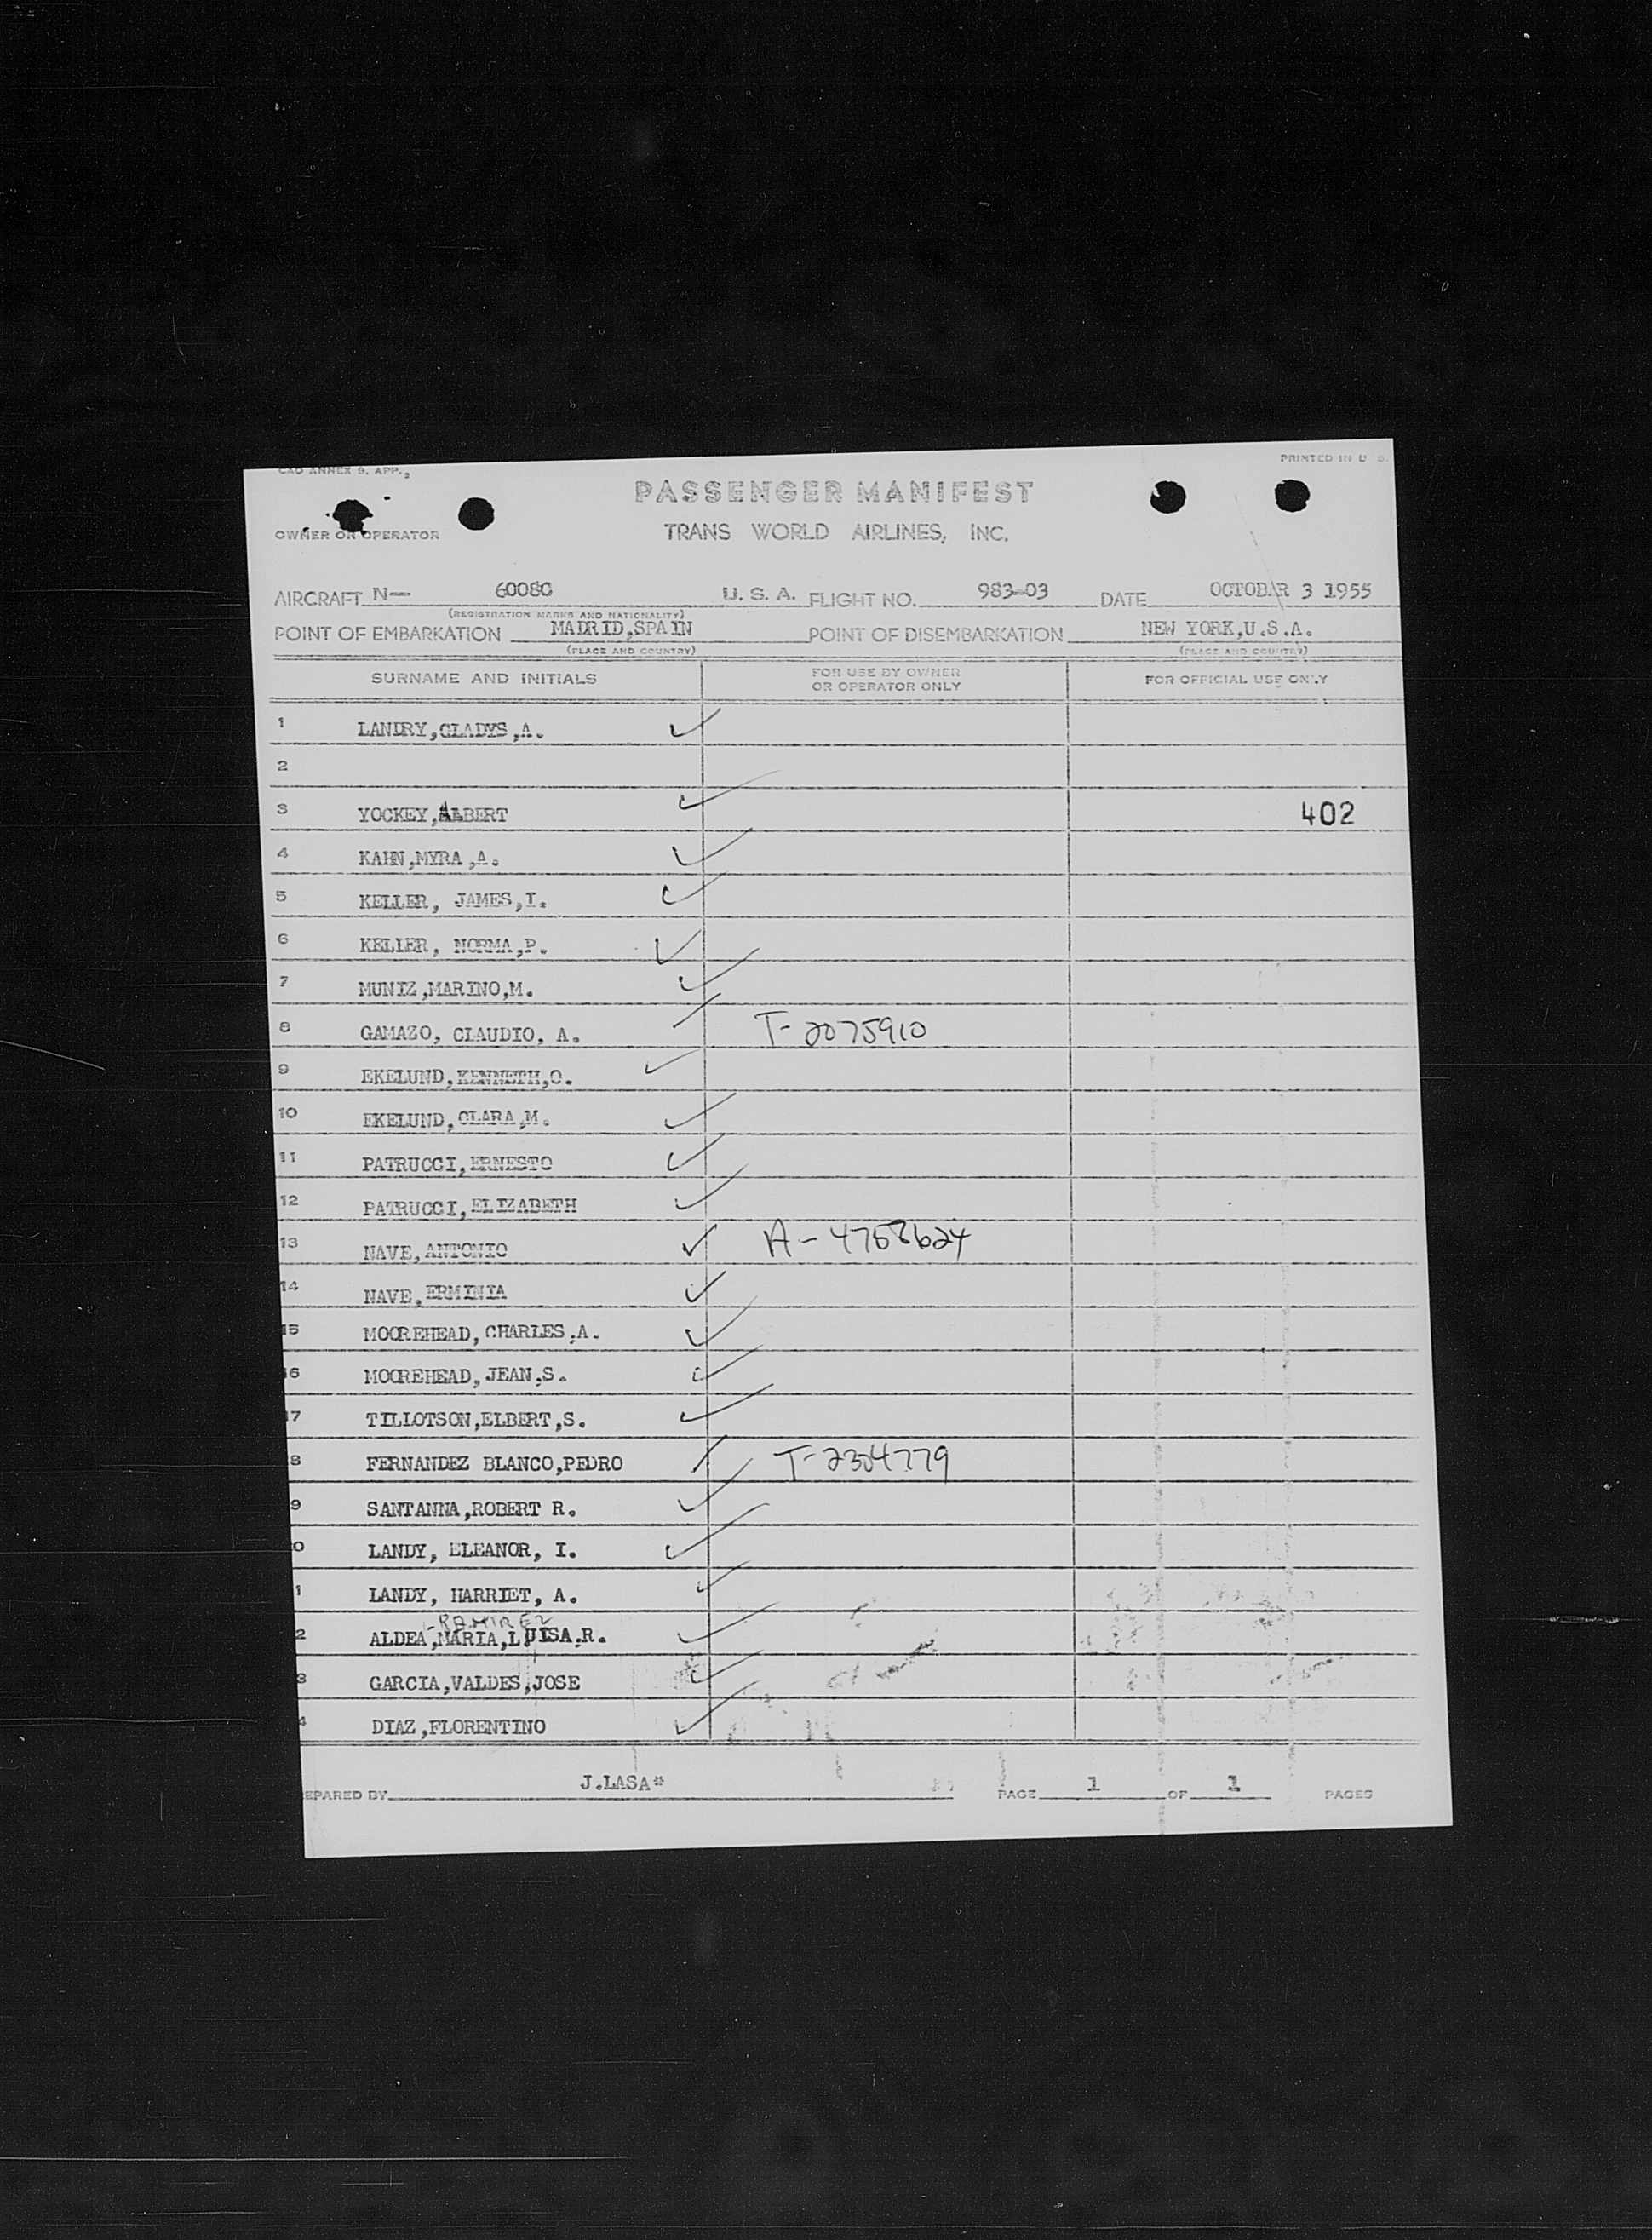 CAO ANNEX 9. APP. 2
PRINTED IN U S.
PASSENGER MANIFEST
OWNER OR OPERATOR
TRANS WORLD AIRLINES, INC.
AIRCRAFT N— 6008C U. S. A. FLIGHT NO. 983-03 DATE OCTOBAR 3 1955
(REGISTRATION MARKS AND NATIONALITY)
POINT OF EMBARKATION MADRID,SPAIN POINT OF DISEMBARKATION NEW YORK,U.S.A.
(PLACE AND COUNTRY) (PLACE AND COUNTRY)
SURNAME AND INITIALS FOR USE BY OWNER OR OPERATOR ONLY FOR OFFICIAL USE ONLY
1 LANDRY,GLADYS,A. ✓
2
3 YOCKEY,ALBERT ✓ 402
4 KAHN,MYRA,A. ✓
5 KELLER, JAMES,I. ✓
6 KELLER, NORMA,P. ✓
7 MUNIZ,MARINO,M. ✓
8 GAMAZO, CLAUDIO, A. / T-2075910
9 EKELUND,KENNETH,O. ✓
10 EKELUND,CLARA,M. ✓
11 PATRUCCI,ERNESTO ✓
12 PATRUCCI,ELIZABETH ✓
13 NAVE,ANTONIO ✓ A-4768624
14 NAVE,ERMINIA ✓
15 MOOREHEAD,CHARLES,A. ✓
16 MOOREHEAD,JEAN,S. ✓
17 TILLOTSON,ELBERT,S. ✓
8 FERNANDEZ BLANCO,PEDRO / T-2304779
9 SANTANNA,ROBERT R. ✓
0 LANDY, ELEANOR, I. ✓
1 LANDY, HARRIET, A. ✓
-RAMIREZ
2 ALDEA,MARIA,LUISA.R. ✓
3 GARCIA,VALDES,JOSE ✓
4 DIAZ,FLORENTINO ✓
EPARED BY J.LASA* PAGE 1 OF 1 PAGES